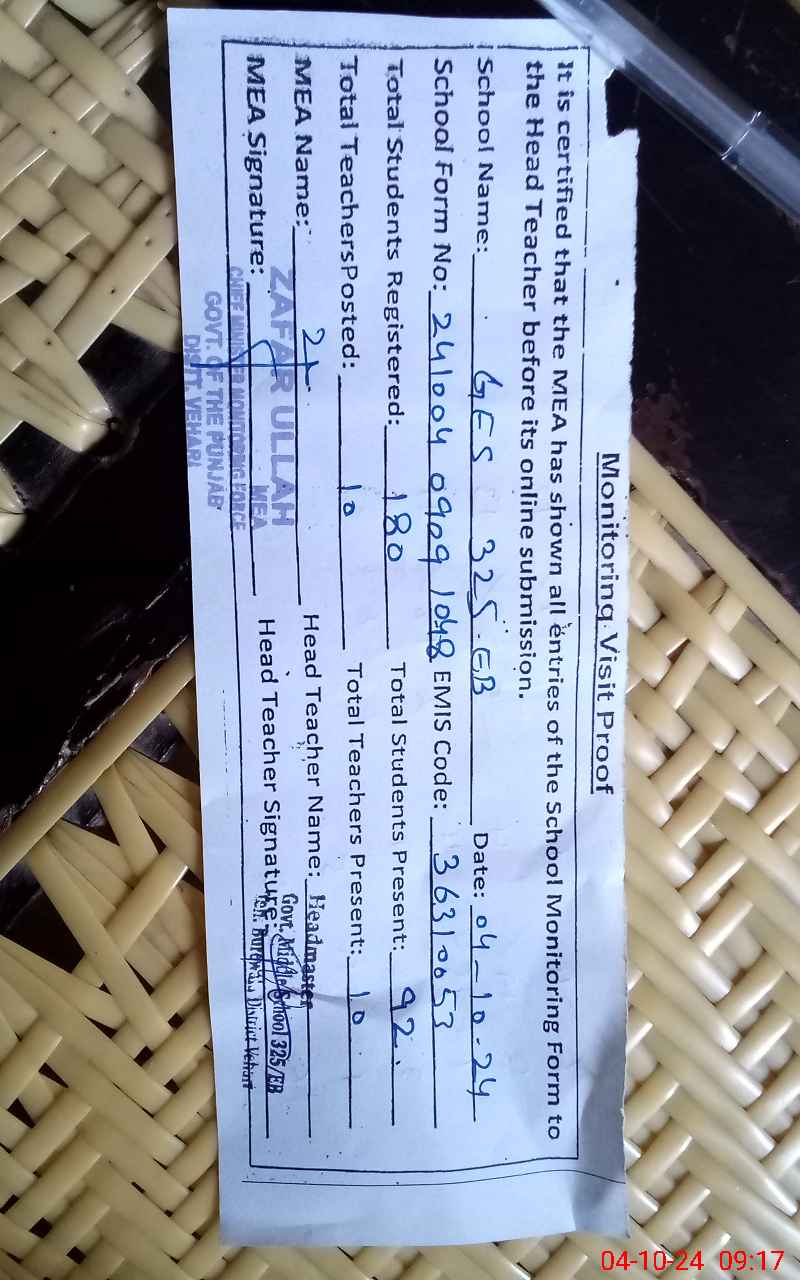 Monitoring Visit Proof
It is certified that the MEA has shown all entries of the School Monitoring Form to
the Head Teacher before its online submission.
School Name: GES 325-EB Date: 04-10-24
School Form No: 241004 0909 1048 EMIS Code: 36310053
Total Students Registered: 180 Total Students Present: 92
Total TeachersPosted: 10 Total Teachers Present: 10
MEA Name: Head Teacher Name: Headmaster
ZAFAR ULLAH
MEA
MEA Signature: Head Teacher Signature: Govt. Middle School 325/EB
Teh. Burewala District Vehari
CHIEF MINISTER MONITORING FORCE
GOVT. OF THE PUNJAB
DISTT. VEHARI
04-10-24 09:17